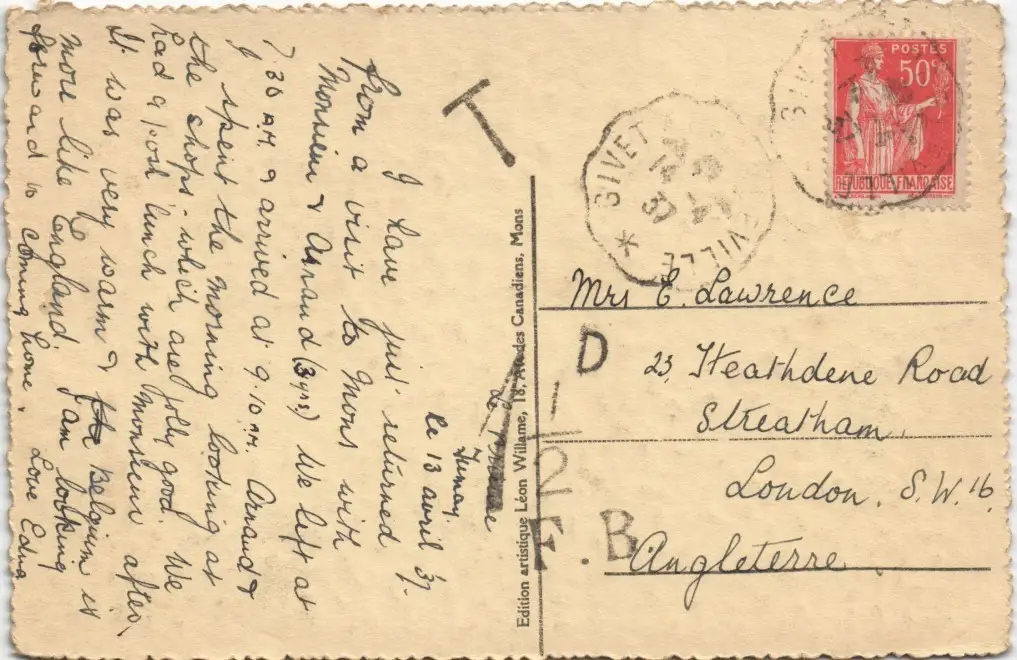 Fumay.
le 13 avril 37.
I have just returned
from a visit to Mons with
Monsieur & Arnaud (3 yrs) We left at
7.30 AM. & arrived at 9.10 AM. Arnaud &
I spent the morning looking at
the shops which are jolly good. We
had a good lunch with Monsieur after,
It was very warm & Belgium is
more like England. I am looking
forward to coming home. Love Edna
Edition artistique Léon Willame, 18, Av. des Canadiens, Mons
T
GIVET
VILLE
37
POSTES
50c
REPUBLIQUE FRANÇAISE
Mrs E. Lawrence
23, Heathdene Road
Streatham,
London. S.W. 16
Angleterre
D
1
2
F. B